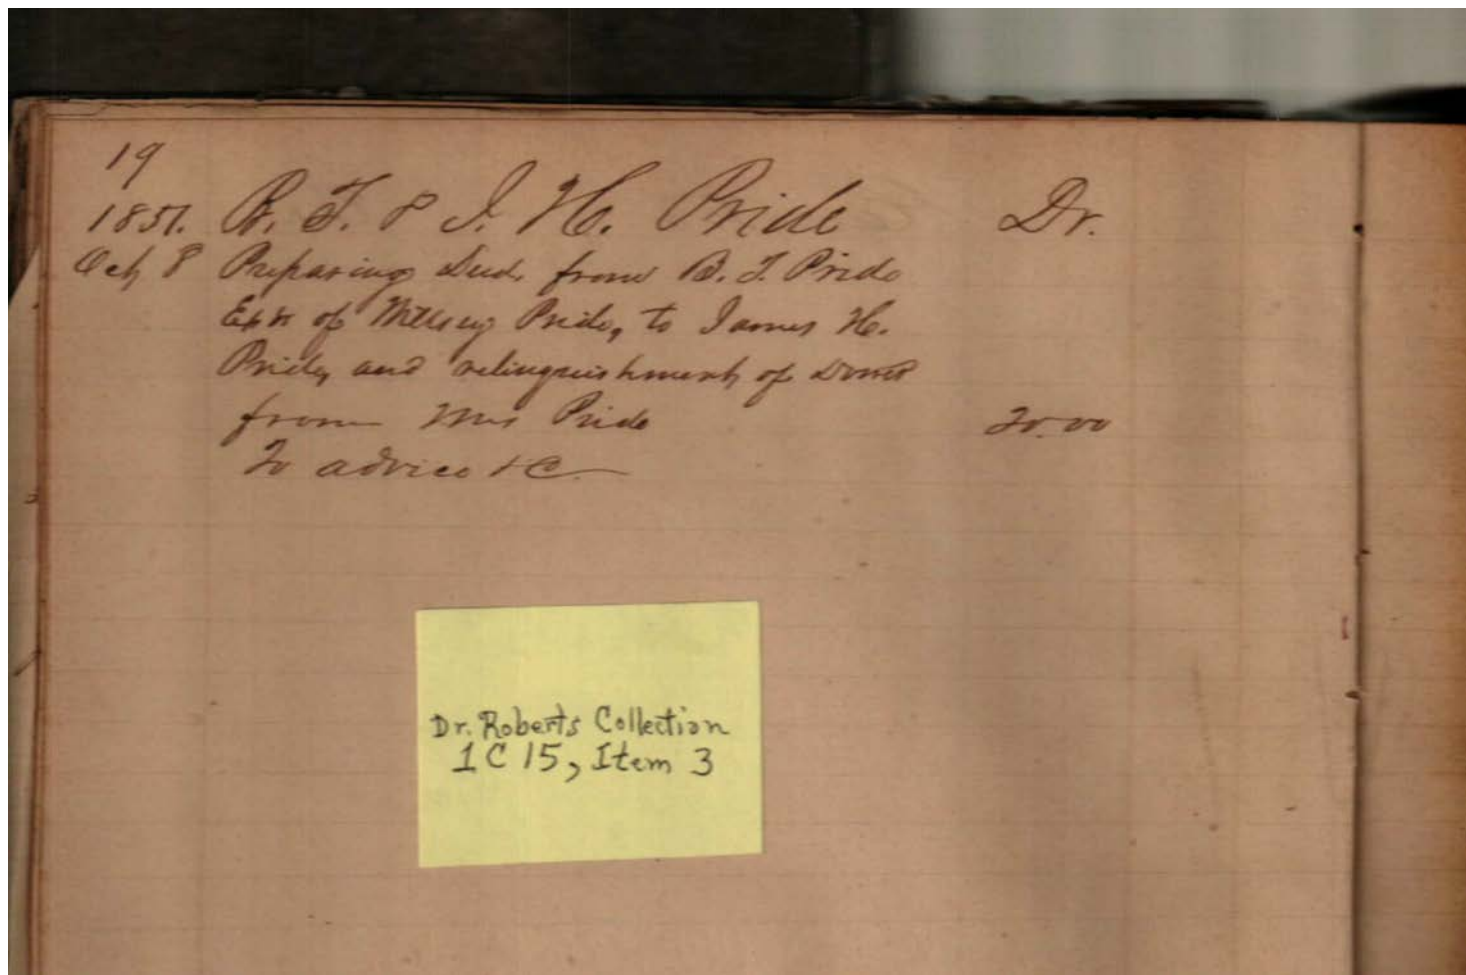 19
1851. B. T. & J. H. Pride Dr.
Oct 8 Preparing Deed from B. T. Pride
Exr of Pride, to James H.
Pride, and relinquishment of Dower
from Mrs Pride 20.00
To advice &C.
Dr. Roberts Collection
1 C 15, Item 3